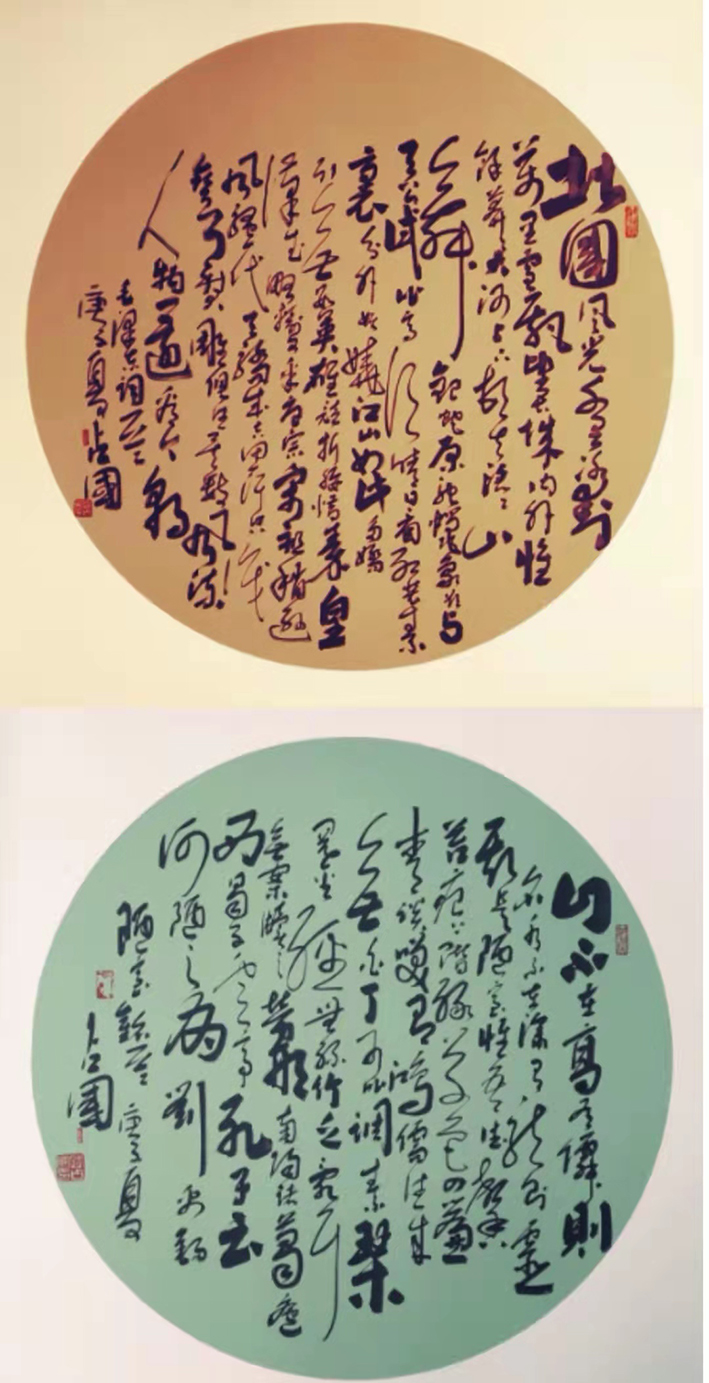 北國風光千里冰封
萬里雪飄望長城內外惟
餘莽莽大河上下頓失滔滔山
舞銀蛇原馳蠟象欲與
天公試比高須晴日看紅裝素
裹分外妖嬈江山如此多嬌
引無數英雄競折腰惜秦皇
漢武略輸文采唐宗宋祖稍遜
風騷一代天驕成吉思汗只識
彎弓射大雕俱往矣數風流
人物還看今朝
毛澤東詞一首
庚子夏占國
山不在高有僊則
名水不在深有龍則靈
斯是陋室惟吾德馨
苔痕上階綠草色入簾
青談笑有鴻儒往來
無白丁可以調素琴
閱金經無絲竹之亂耳
無案牘之勞形南陽諸葛廬
西蜀子雲亭孔子云
何陋之有劉禹錫
陋室銘一首庚子夏
占國